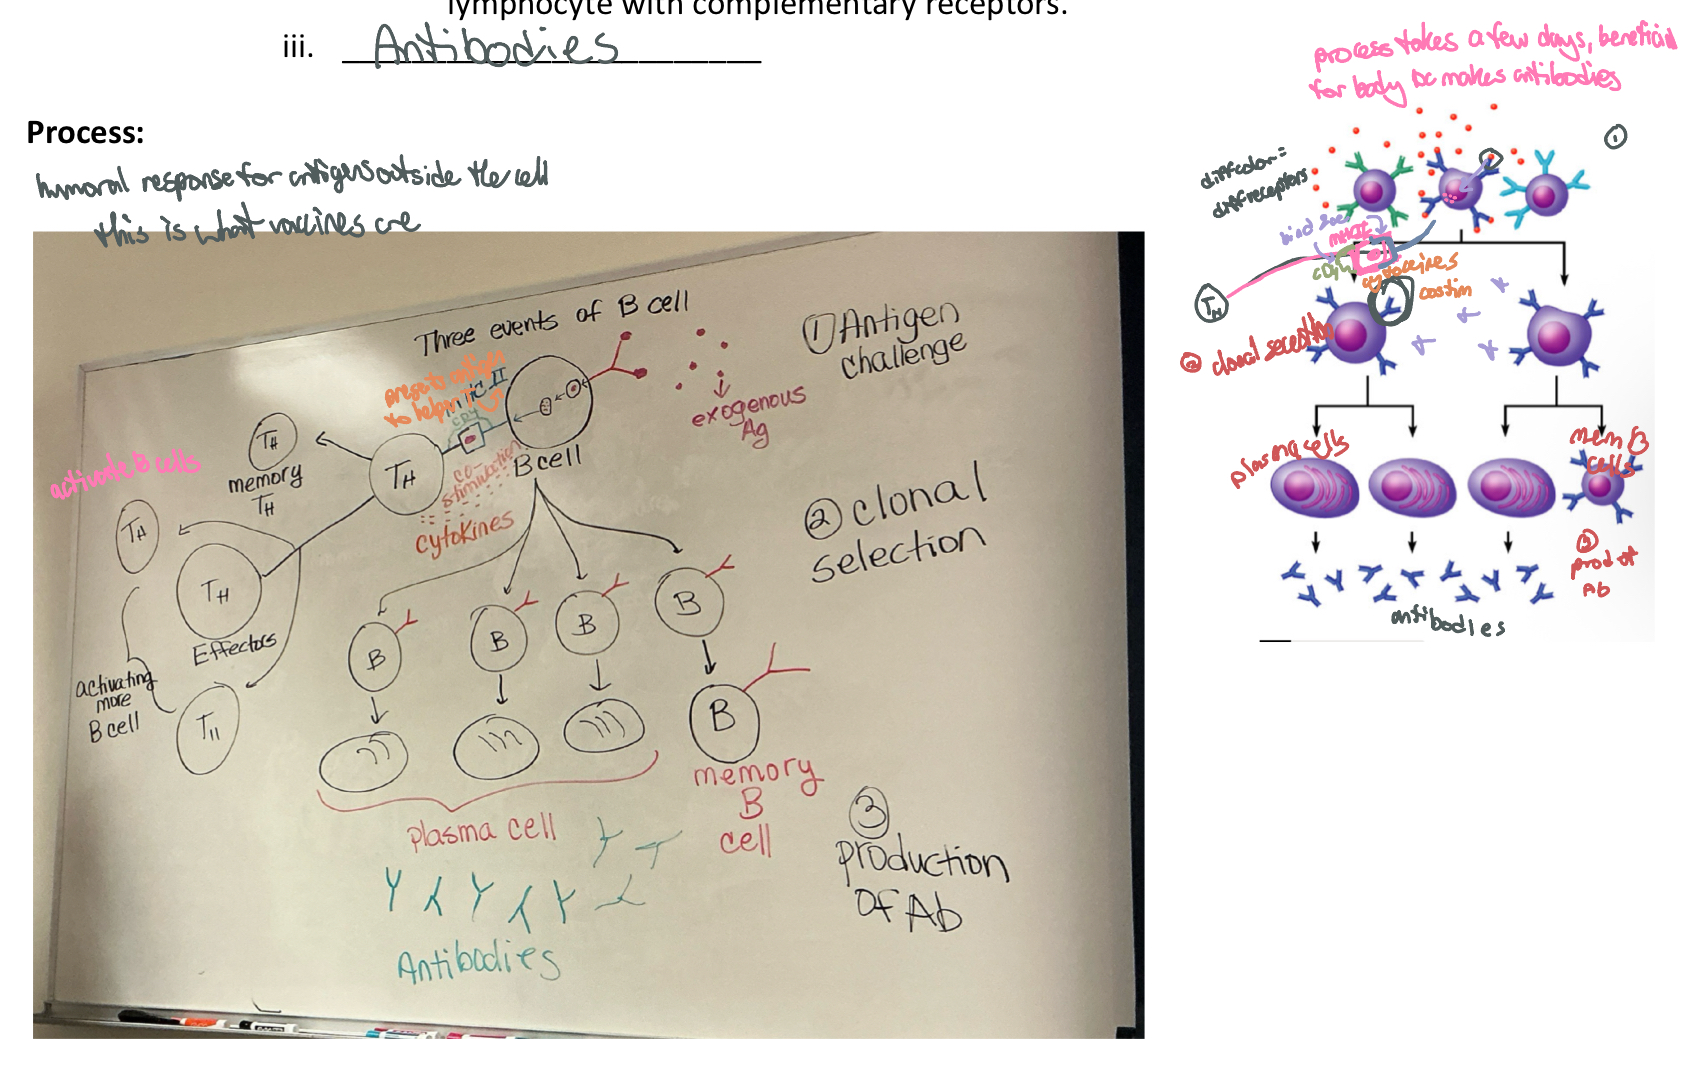 lymphocyte with complementary receptors.
iii. Antibodies
Process:
humoral response for antigens outside the cell
this is what vaccines are
process takes a few days, beneficial
for body bc makes antibodies
1
diff color =
diff receptors
MHCII
CD4
cytokines
costim
TH
2 clonal
plasma cells
mem B
cells
3
prod of
Ab
antibodies
Three events of B cell
1 Antigen
challenge
presents antigen
to helper T
MHC II
CD4
exogenous
Ag
B cell
TH
memory
TH
TH
co
stimulation
cytokines
activate B cells
TH
TH
Effectors
activating
more
B cell
TH
2 clonal
selection
B
B
B
B
B
plasma cell
memory
B
cell
Antibodies
3
production
of Ab